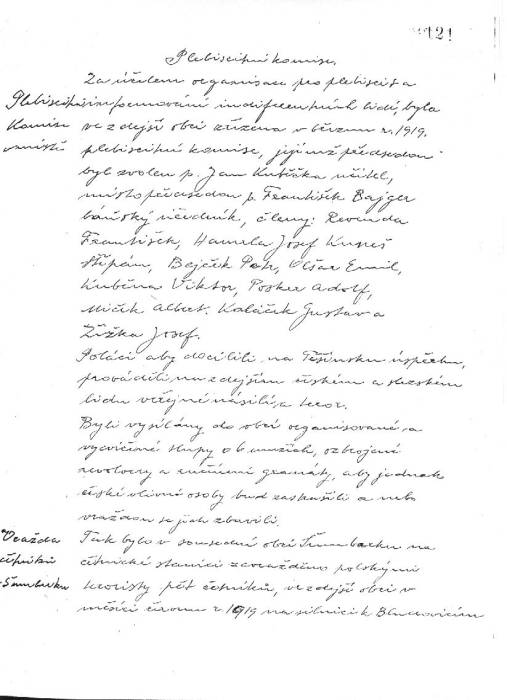 121
Plebiscitní komise.
Za účelem organisace pro plebiscit a
Plebiscitní informování indiferentních lidí, byla
Komise ve zdejší obci zřízena v březnu r. 1919.
v místě plebiscitní komise, jejímž předsedou
byl zvolen p. Jan Kubička učitel,
místopředsedou p. František Bajger
báňský úředník, členy: Revenda
František, Hamela Josef Kuneš
Štěpán, Bejček Petr, Olšar Emil,
Kuběna Viktor, Posker Adolf,
Mičík Albert. Kaláčik Gustav a
Žižka Josef.
Poláci aby docílili na Těšínsku úspěchu,
prováděli na zdejším českém a slezském
lidu veřejné násilí a teror.
Byli vysíláni do obcí organisované a
vycvičené tlupy o 6 mužích, ozbrojené
revolvery a ručními granáty, aby jednak
české vlivné osoby buď zastrašili a nebo
vraždou se jich zbavili.
Vražda Tak bylo v sousední obci Šumbarku na
četníků četnické stanici zavražděno polskými
Šumbarku teroristy pět četníků, ve zdejší obci v
měsíci červnu r. 1919 na silnici k Bludovicím